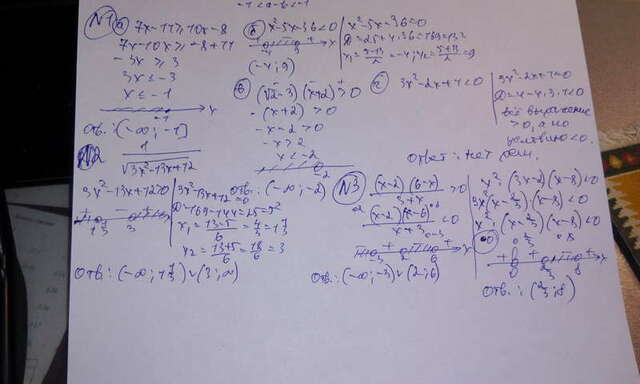 N1 а) 7x-11≥10x-8
7x-10x≥-8+11
-3x≥3
3x≤-3
x≤-1
-1 x
отв.: (-∞; -1]
б) x²-5x-36<0
(-4; 9)
x²-5x-36=0
D=25+4·36=169=13²
x₁=(5-13)/2=-4; x₂=(5+13)/2=9
в) (√2-3)(x+2)>0
-(x+2)>0
-x-2>0
-x>2
x<-2
-2
отв: (-∞; -2)
г) 3x²-2x+4<0
3x²-2x+4=0
всё выражение
>0, а по
условию <0.
ответ: нет реш.
N2 1/√(3x²-13x+12)
3x²-13x+12>0
3x²-13x+12=0
D=169-144=25=5²
x₁=(13-5)/6=
x₂=(13+5)/6=18/6=3
N3 (x-2)(6-x)/(3+x)>0
(x-2)(x-6)/(x+3)<0
-3 2 6 x
отв.: (-∞; -3)∪(2; 6)
x²·(3x-2)(x-8)<0
x²·(x-2/3)(x-8)<0
0 2/3 8
отв.: (2/3; 8)